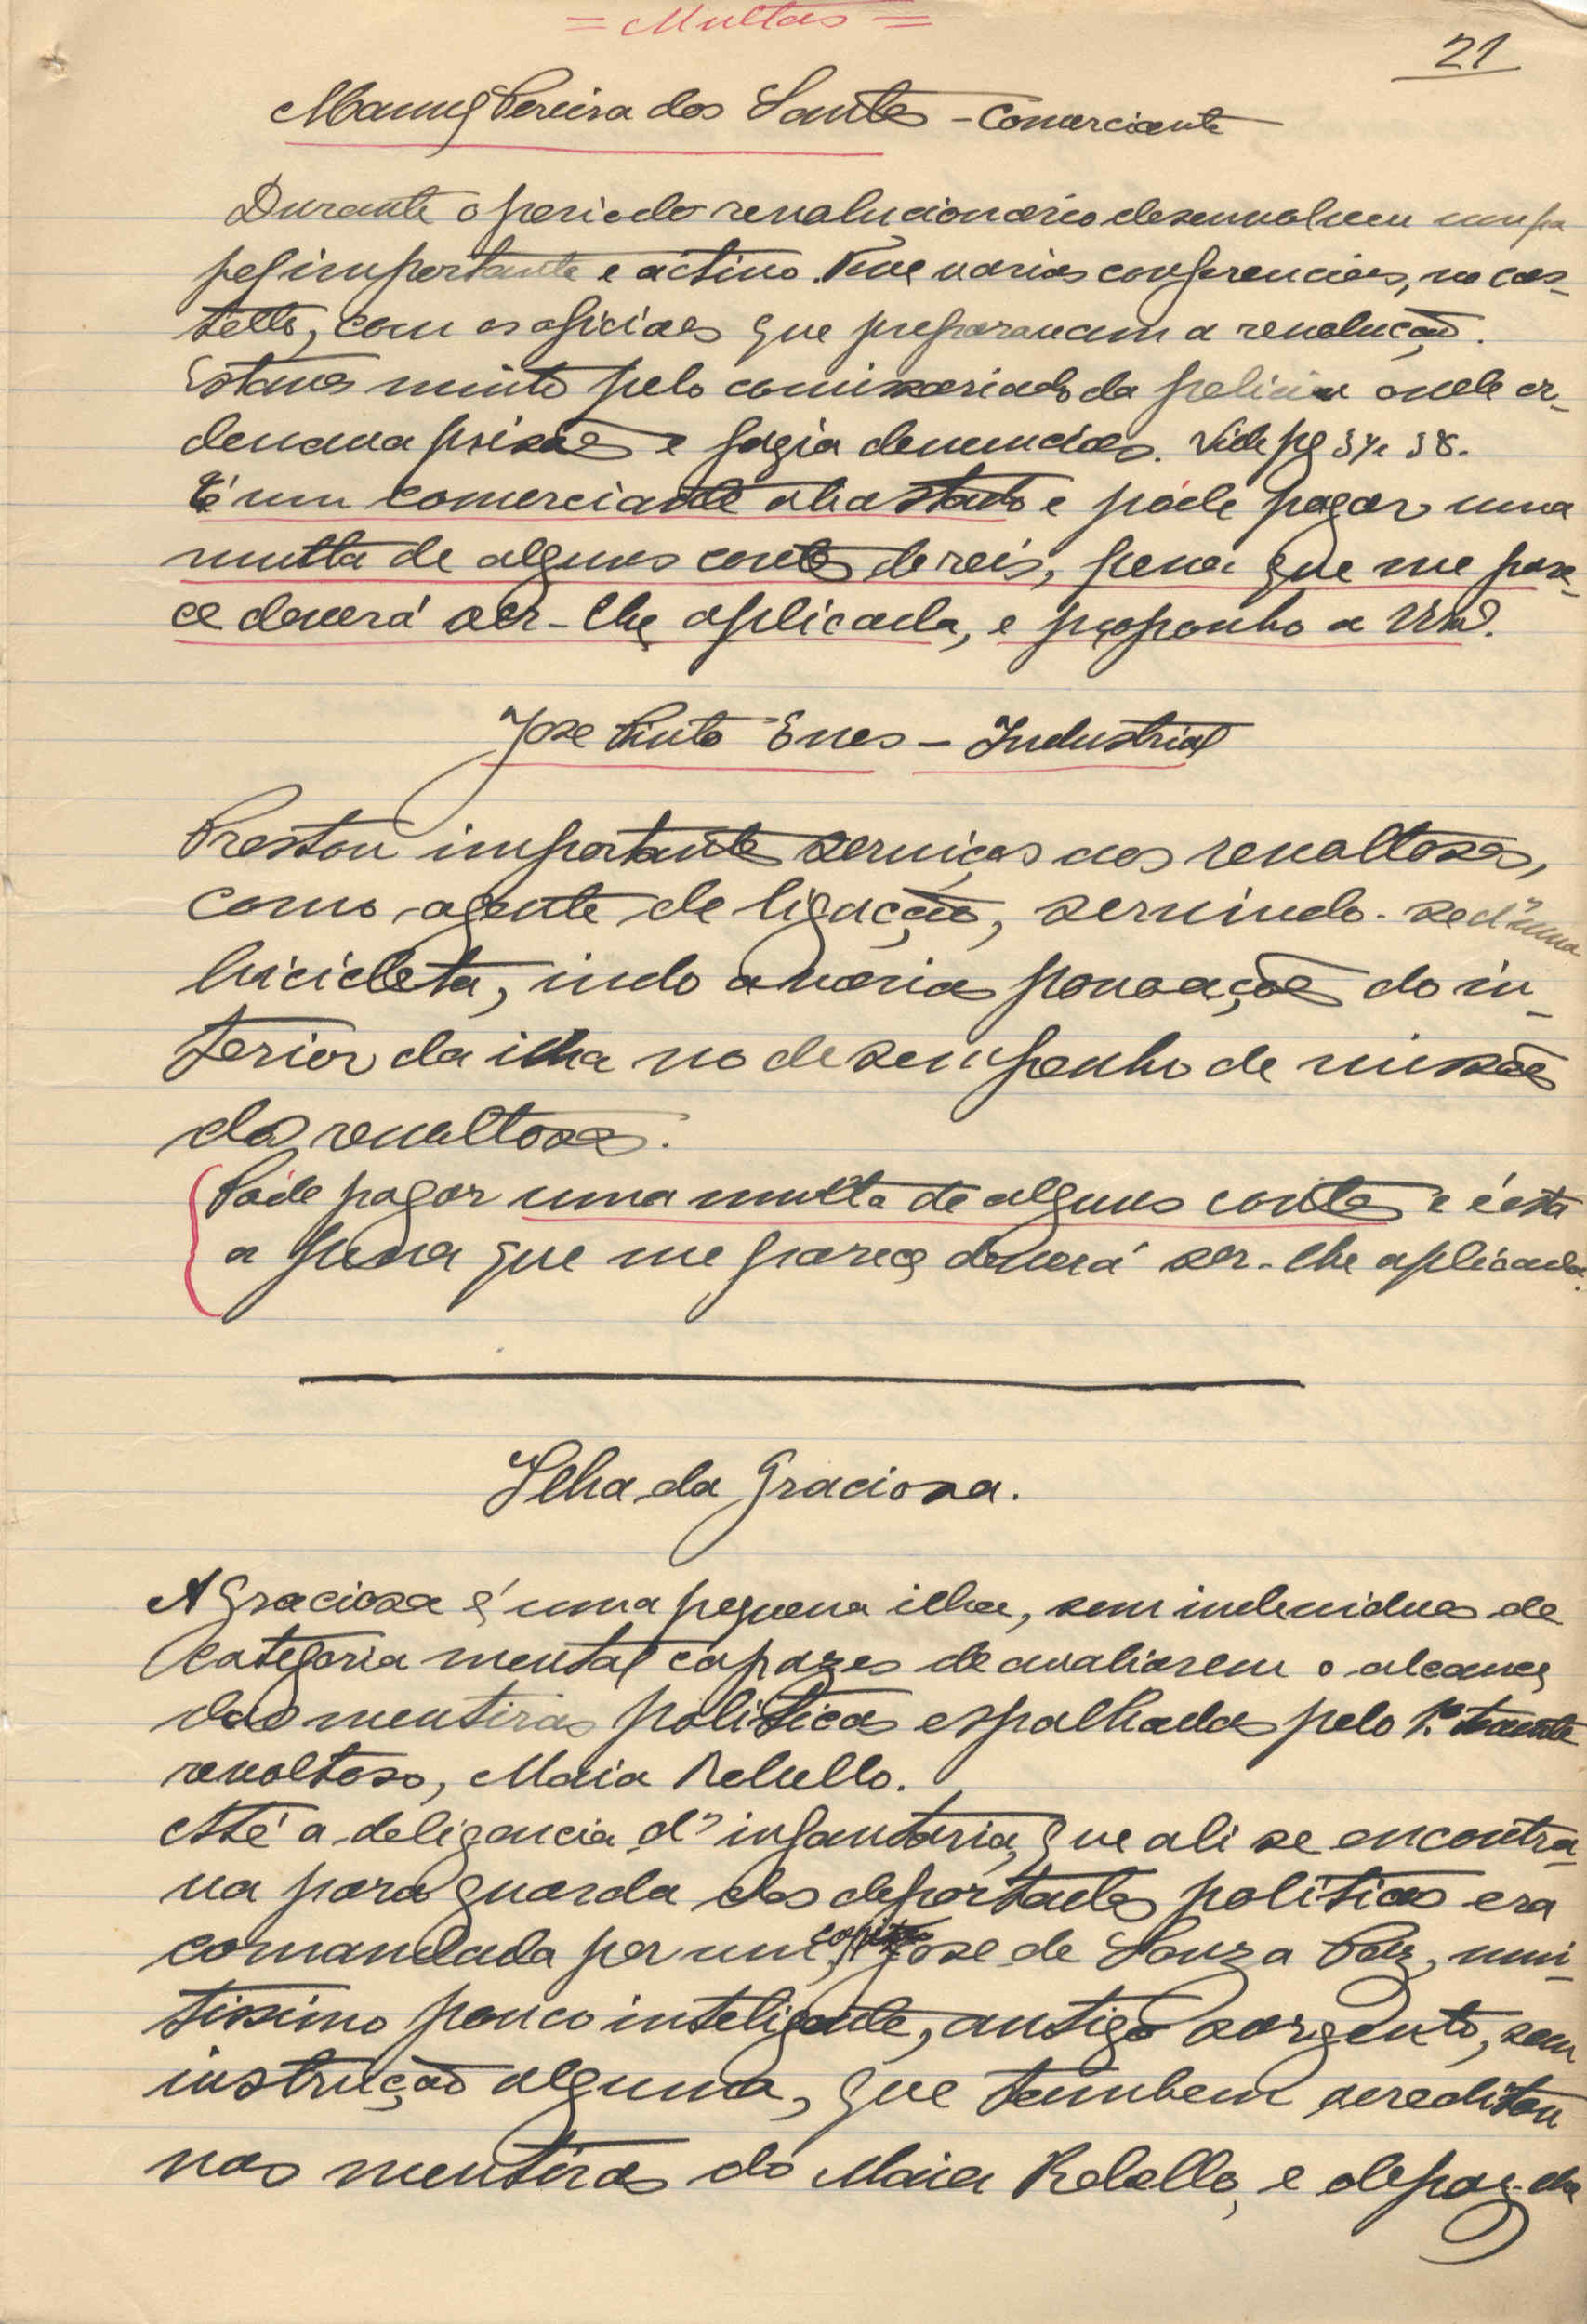 = Multas =
21
Manuel Pereira dos Santos - Comerciante
Durante o periodo revolucionario desenvolveu um pa
pel importante e activo. Teve varias conferencias, no cas-
tello, com os oficiaes que preparavam a revolução.
Estava muito pelo comissariado da policia onde or-
denava prisões e fazia denuncias. Vide pg 37 e 38.
É um comerciante abastado e póde pagar uma
multa de alguns contos de reis, pena que me pare-
ce deverá ser-lhe aplicada, e proponho a
José Pinto Enes - Industrial
Prestou importantes serviços aos revoltosos,
como agente de ligação, servindo-se d'uma
bicicleta, indo a varias povoações do in-
terior da ilha no desempenho de missões
dos revoltosos.
Póde pagar uma multa de alguns contos e é esta
a pena que me parece deverá ser-lhe aplicada.
Ilha da Graciosa.
A Graciosa é uma pequena ilha, sem individuos de
categoria mental capazes de avaliarem o alcance
das mentiras politicas espalhadas pelo 1º tenente
revoltoso, Maia Rebello.
Até a deligencia d'infantaria, que ali se encontra-
va para guarda dos deportados politicos era
comandada por um capitão José de Souza Paz, mui-
tissimo pouco inteligente, antigo sargento, sem
instrução alguma, que tambem acreditou
nas mentiras do Maia Rebello, e depoz-da